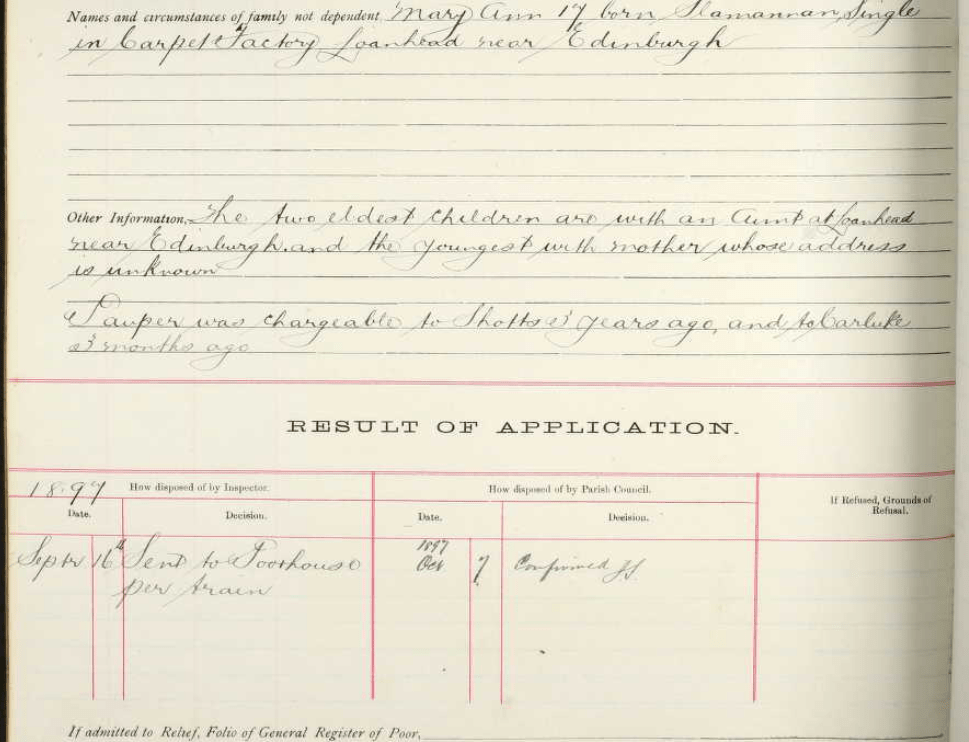 Names and circumstances of family not dependent Mary Ann 17 born Slamannan, Single
in Carpet Factory Loanhead near Edinburgh
Other Information, The two eldest children are with an Aunt at Loanhead
near Edinburgh, and the youngest with mother whose address
is unknown
Pauper was chargeable to Shotts 3 years ago, and to Carluke
3 months ago
RESULT OF APPLICATION.
1897 How disposed of by Inspector. How disposed of by Parish Council. If Refused, Grounds of
Refusal.
Date. Decision. Date. Decision.
1897
Septr 16th Sent to Poorhouse Oct 7 Confirmed
per train
If admitted to Relief, Folio of General Register of Poor,